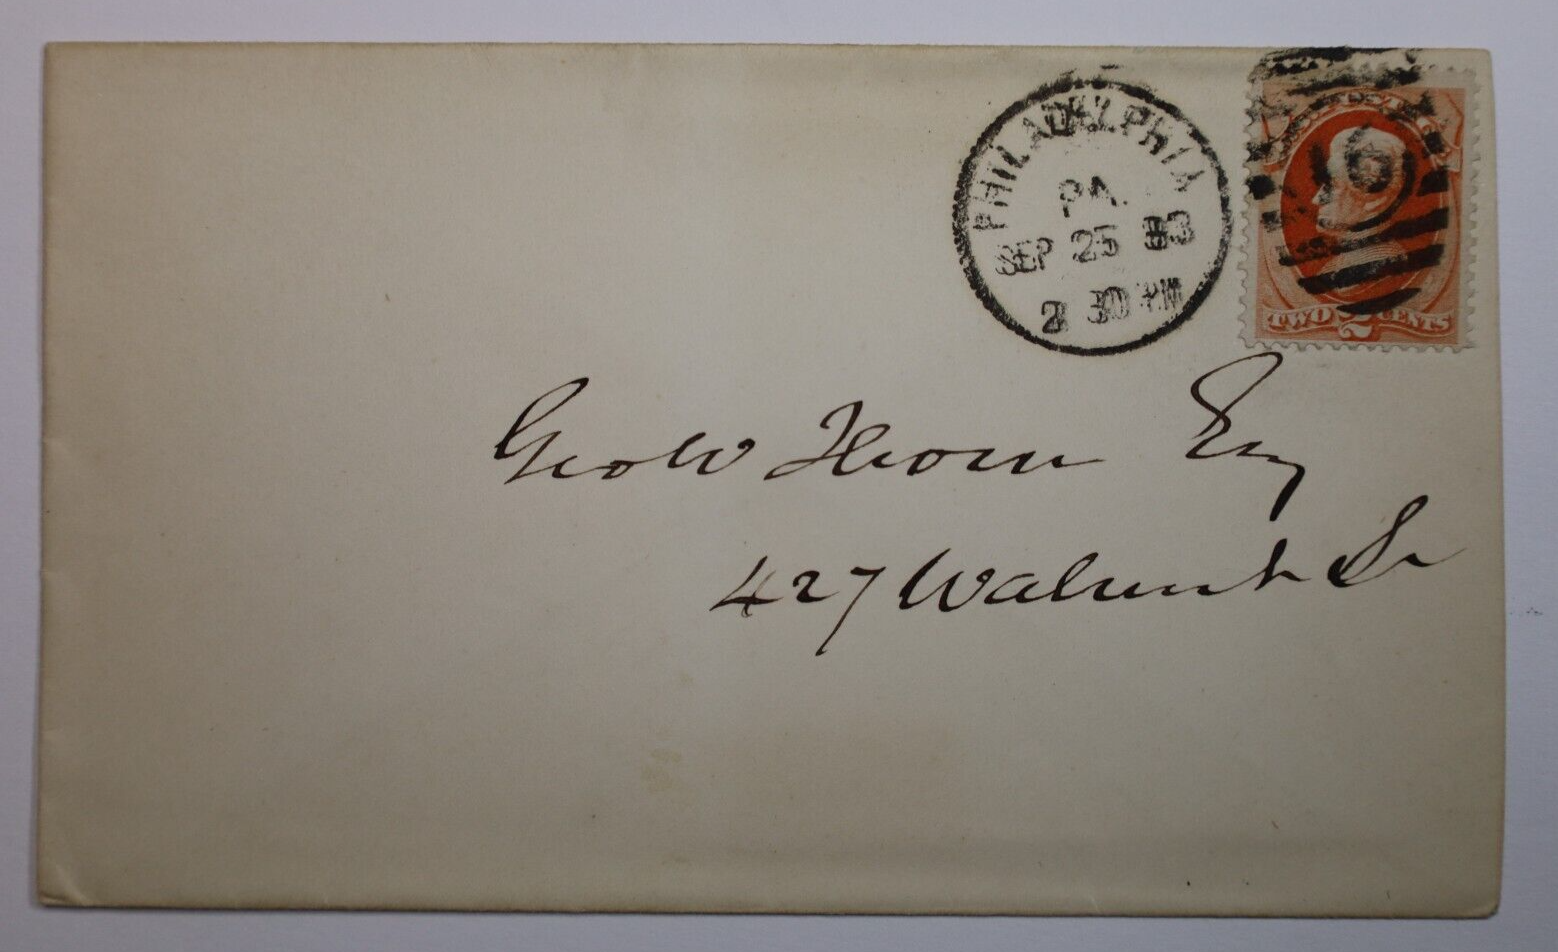 PHILADELPHIA
PA.
SEP 25 83
2 30 PM
TWO 2 CENTS
Geo W Thorn Esq
427 Walnut St